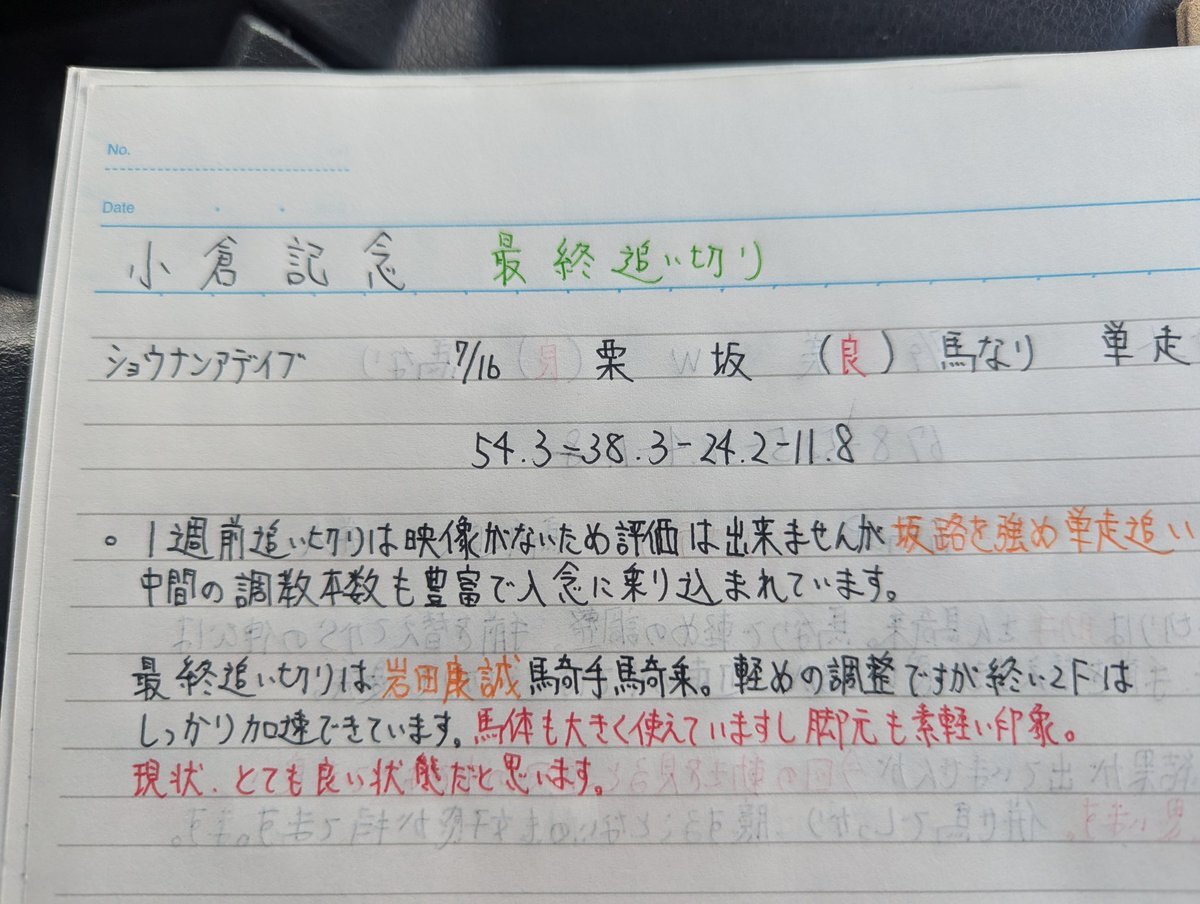 No.
Date
小倉記念 最終追い切り
ショウナンアデイブ 7/16 栗 坂 (良) 馬なり 単走
54.3-38.3-24.2-11.8
。1週前追い切りは映像がないため評価は出来ませんが坂路を強め単走追い
中間の調教本数も豊富で入念に乗り込まれています。
最終追い切りは岩田康誠騎手騎乗。軽めの調整ですが終い2Fは
しっかり加速できています。馬体も大きく使えていますし脚元も素軽い印象。
現状、とても良い状態だと思います。